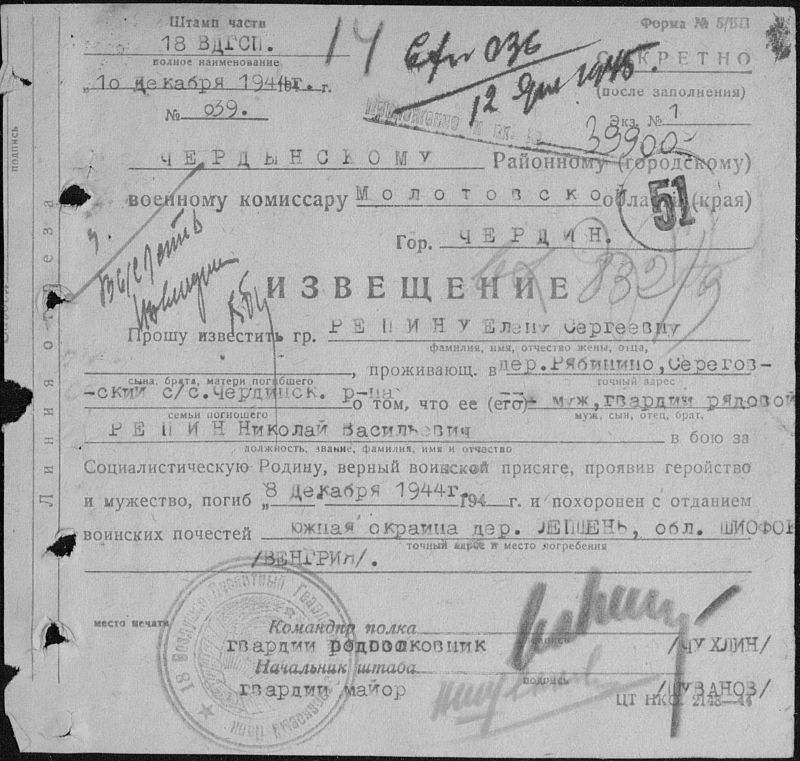 Штамп части
18 ВДГСП.
полное наименование
"10 декабря 1944г. г.
№ 039.
14
036
12 1945.
Форма № 5/БП
СЕКРЕТНО
(после заполнения)
Экз. № 1
39900
ЧЕРДЫНСКОМУ Районному (городскому)
военному комиссару Молотовской области (края)
51
Гор. ЧЕРДИН.
832/9
Выслать
ИЗВЕЩЕНИЕ
Прошу известить гр. РЕПИНУ Елену Сергеевну
фамилия, имя, отчество жены, отца,
, проживающ. в дер.Рябинино,Серегов-
сына, брата, матери погибшего
точный адрес
-ский с/с.Чердинск. р-на о том, что ее (его)- муж,гвардии рядовой
семьи погибшего
муж, сын, отец, брат,
РЕПИН Николай Васильевич в бою за
должность, звание, фамилия, имя и отчество
Социалистическую Родину, верный воинской присяге, проявив геройство
и мужество, погиб "8 декабря 1944г. 194 г. и похоронен с отданием
воинских почестей южная окраина дер. ЛЕПШЕНЬ, обл. ШИОФОК
точный адрес и место погребения
/ВЕНГРИЯ/.
место печати
Командир полка
гвардии подполковник /ЧУХЛИН/
подпись
Начальник штаба
гвардии майор /ШУВАНОВ/
подпись
ЦТ НКО. 2143—44
Линия отреза
подпись